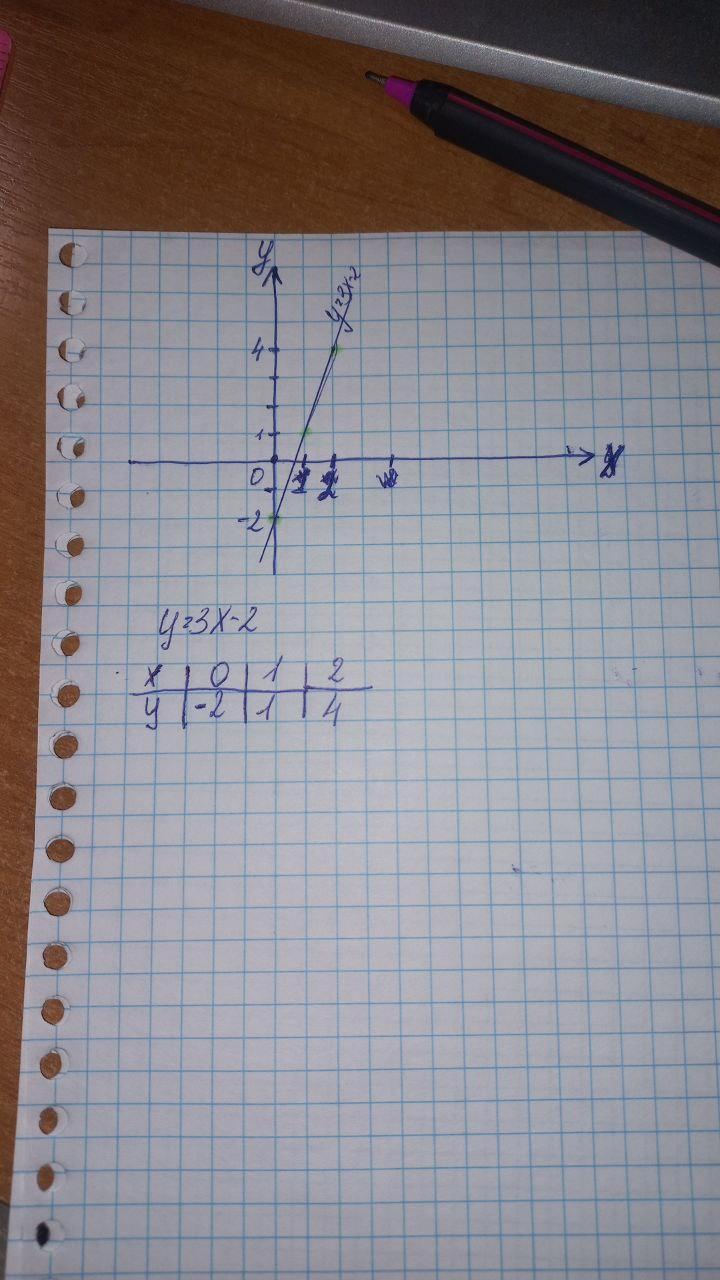 y
y=3x-2
4
1
0 1 2
-2
y=3x-2
x 0 1 2
y -2 1 4